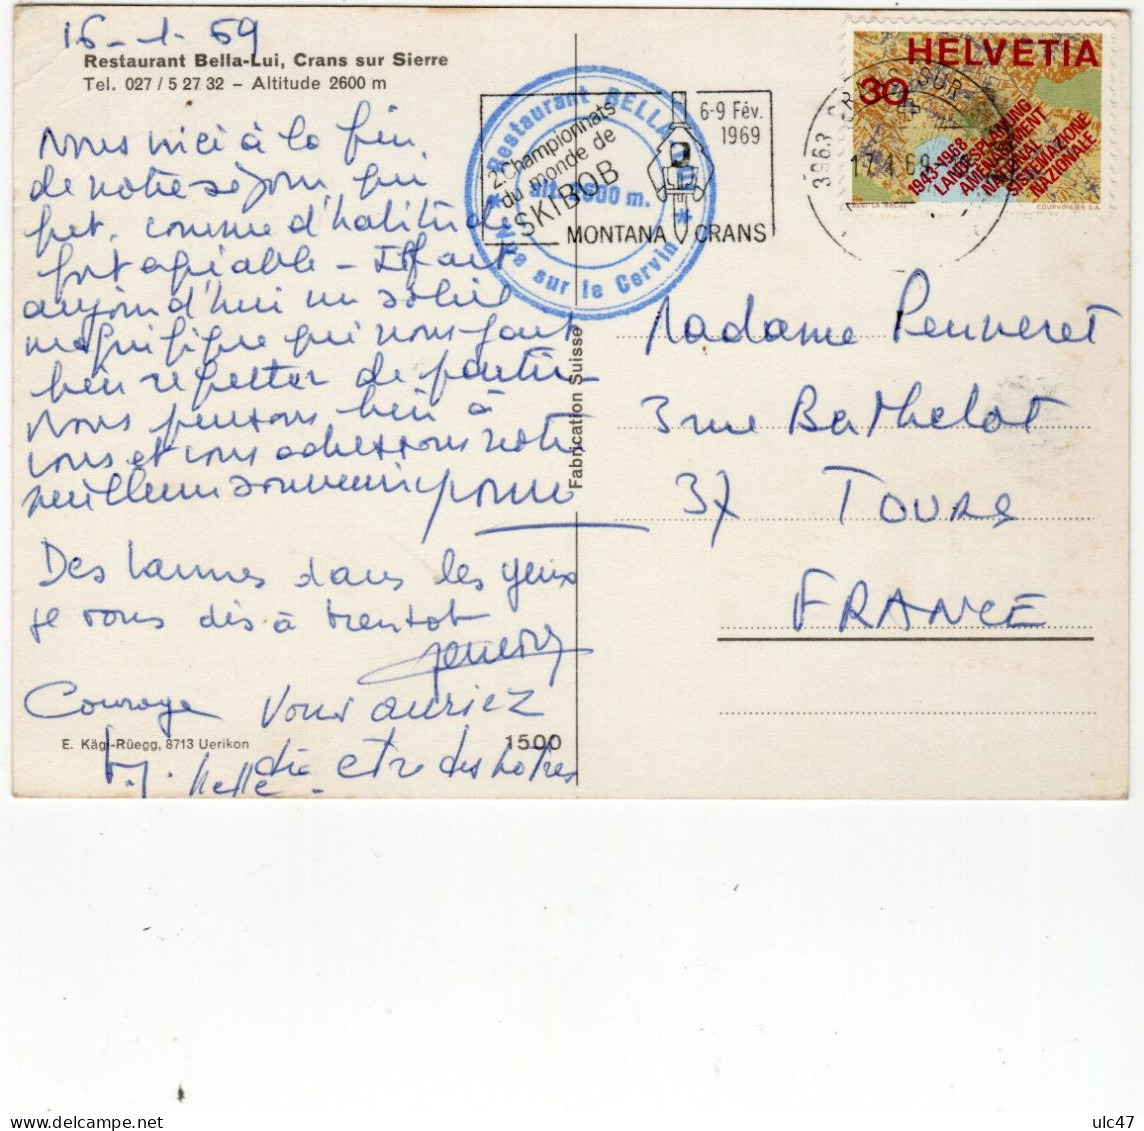 16-1-69
Restaurant Bella-Lui, Crans sur Sierre
Tel. 027 / 5 27 32 – Altitude 2600 m
Nous voici à la fin
de notre séjour qui
fut, comme d'habitude
fort agréable - Il fait
aujourd'hui un soleil
magnifique qui nous fait
bien regretter de partir -
Nous pensons bien à
vous et vous adressons notre
meilleur souvenir
Des larmes dans les yeux
je vous dis à bientôt
Courage Vous auriez
dû être des nôtres
E. Kägi-Rüegg, 8713 Uerikon
1500
Fabrication Suisse
Restaurant BELLA
alt. 2600 m.
Vue sur le Cervin
2. Championnats
du monde de
SKIBOB
6-9 Fév.
1969
MONTANA CRANS
3963 CRANS SUR
HELVETIA
30
1943-1968
LANDESPLANUNG
AMENAGEMENT
NATIONAL
SISTEMAZIONE
NAZIONALE
COURVOISIER S.A.
Madame Penveret
3 rue Barthelot
37 TOURS
FRANCE
delcampe.net
ulc47